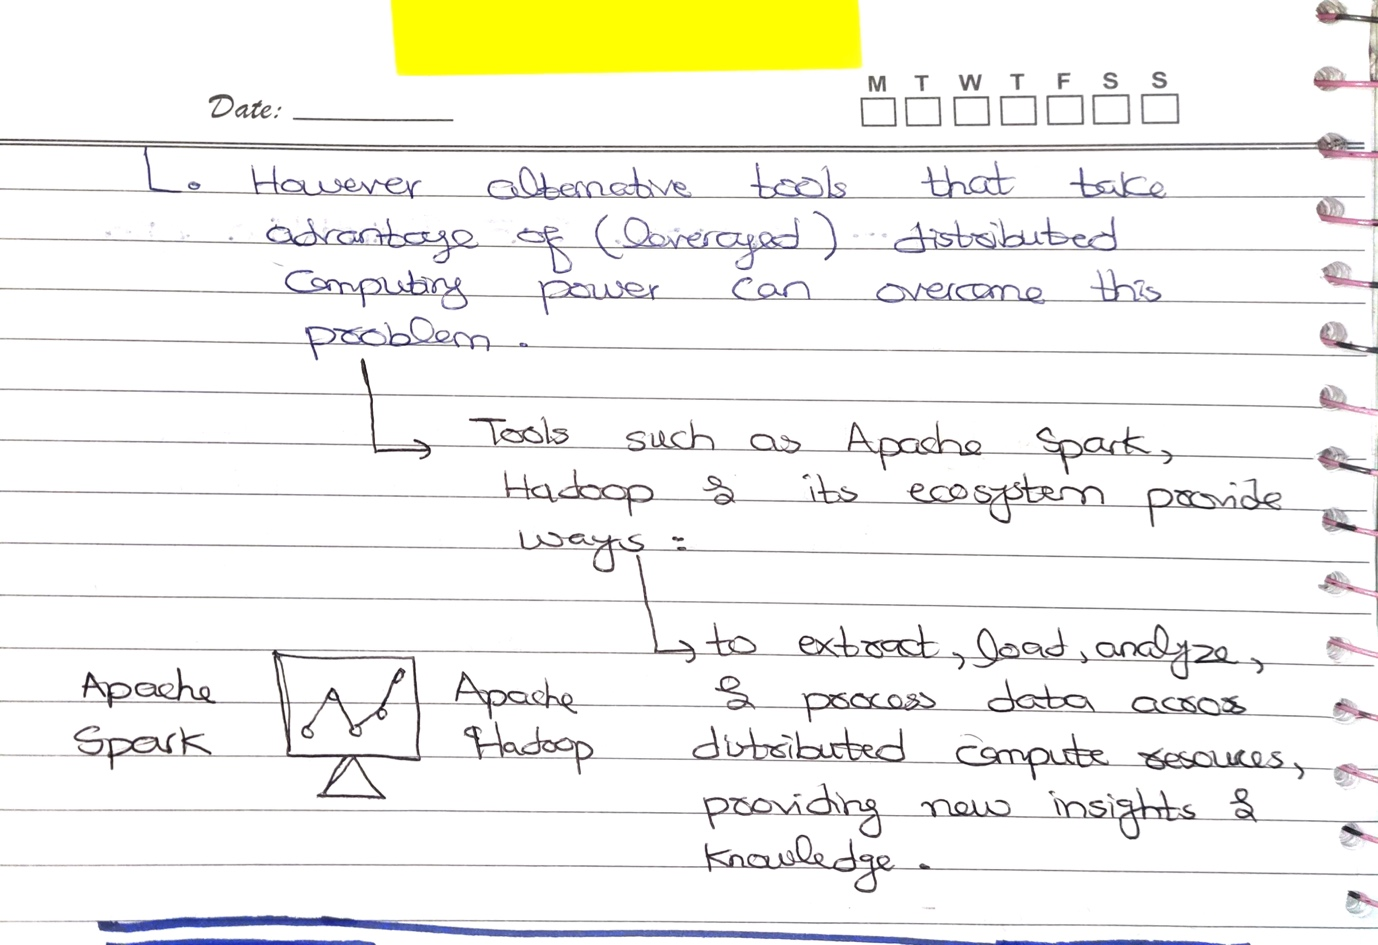 M T W T F S S
Date:
However alternative tools that take
advantage of (leveraged) distributed
Computing power can overcome this
problem.
Tools such as Apache Spark,
Hadoop & its ecosystem provide
ways:
to extract, load, analyze,
Apache Apache & process data across
Spark Hadoop distributed compute resouces,
providing new insights &
knowledge.